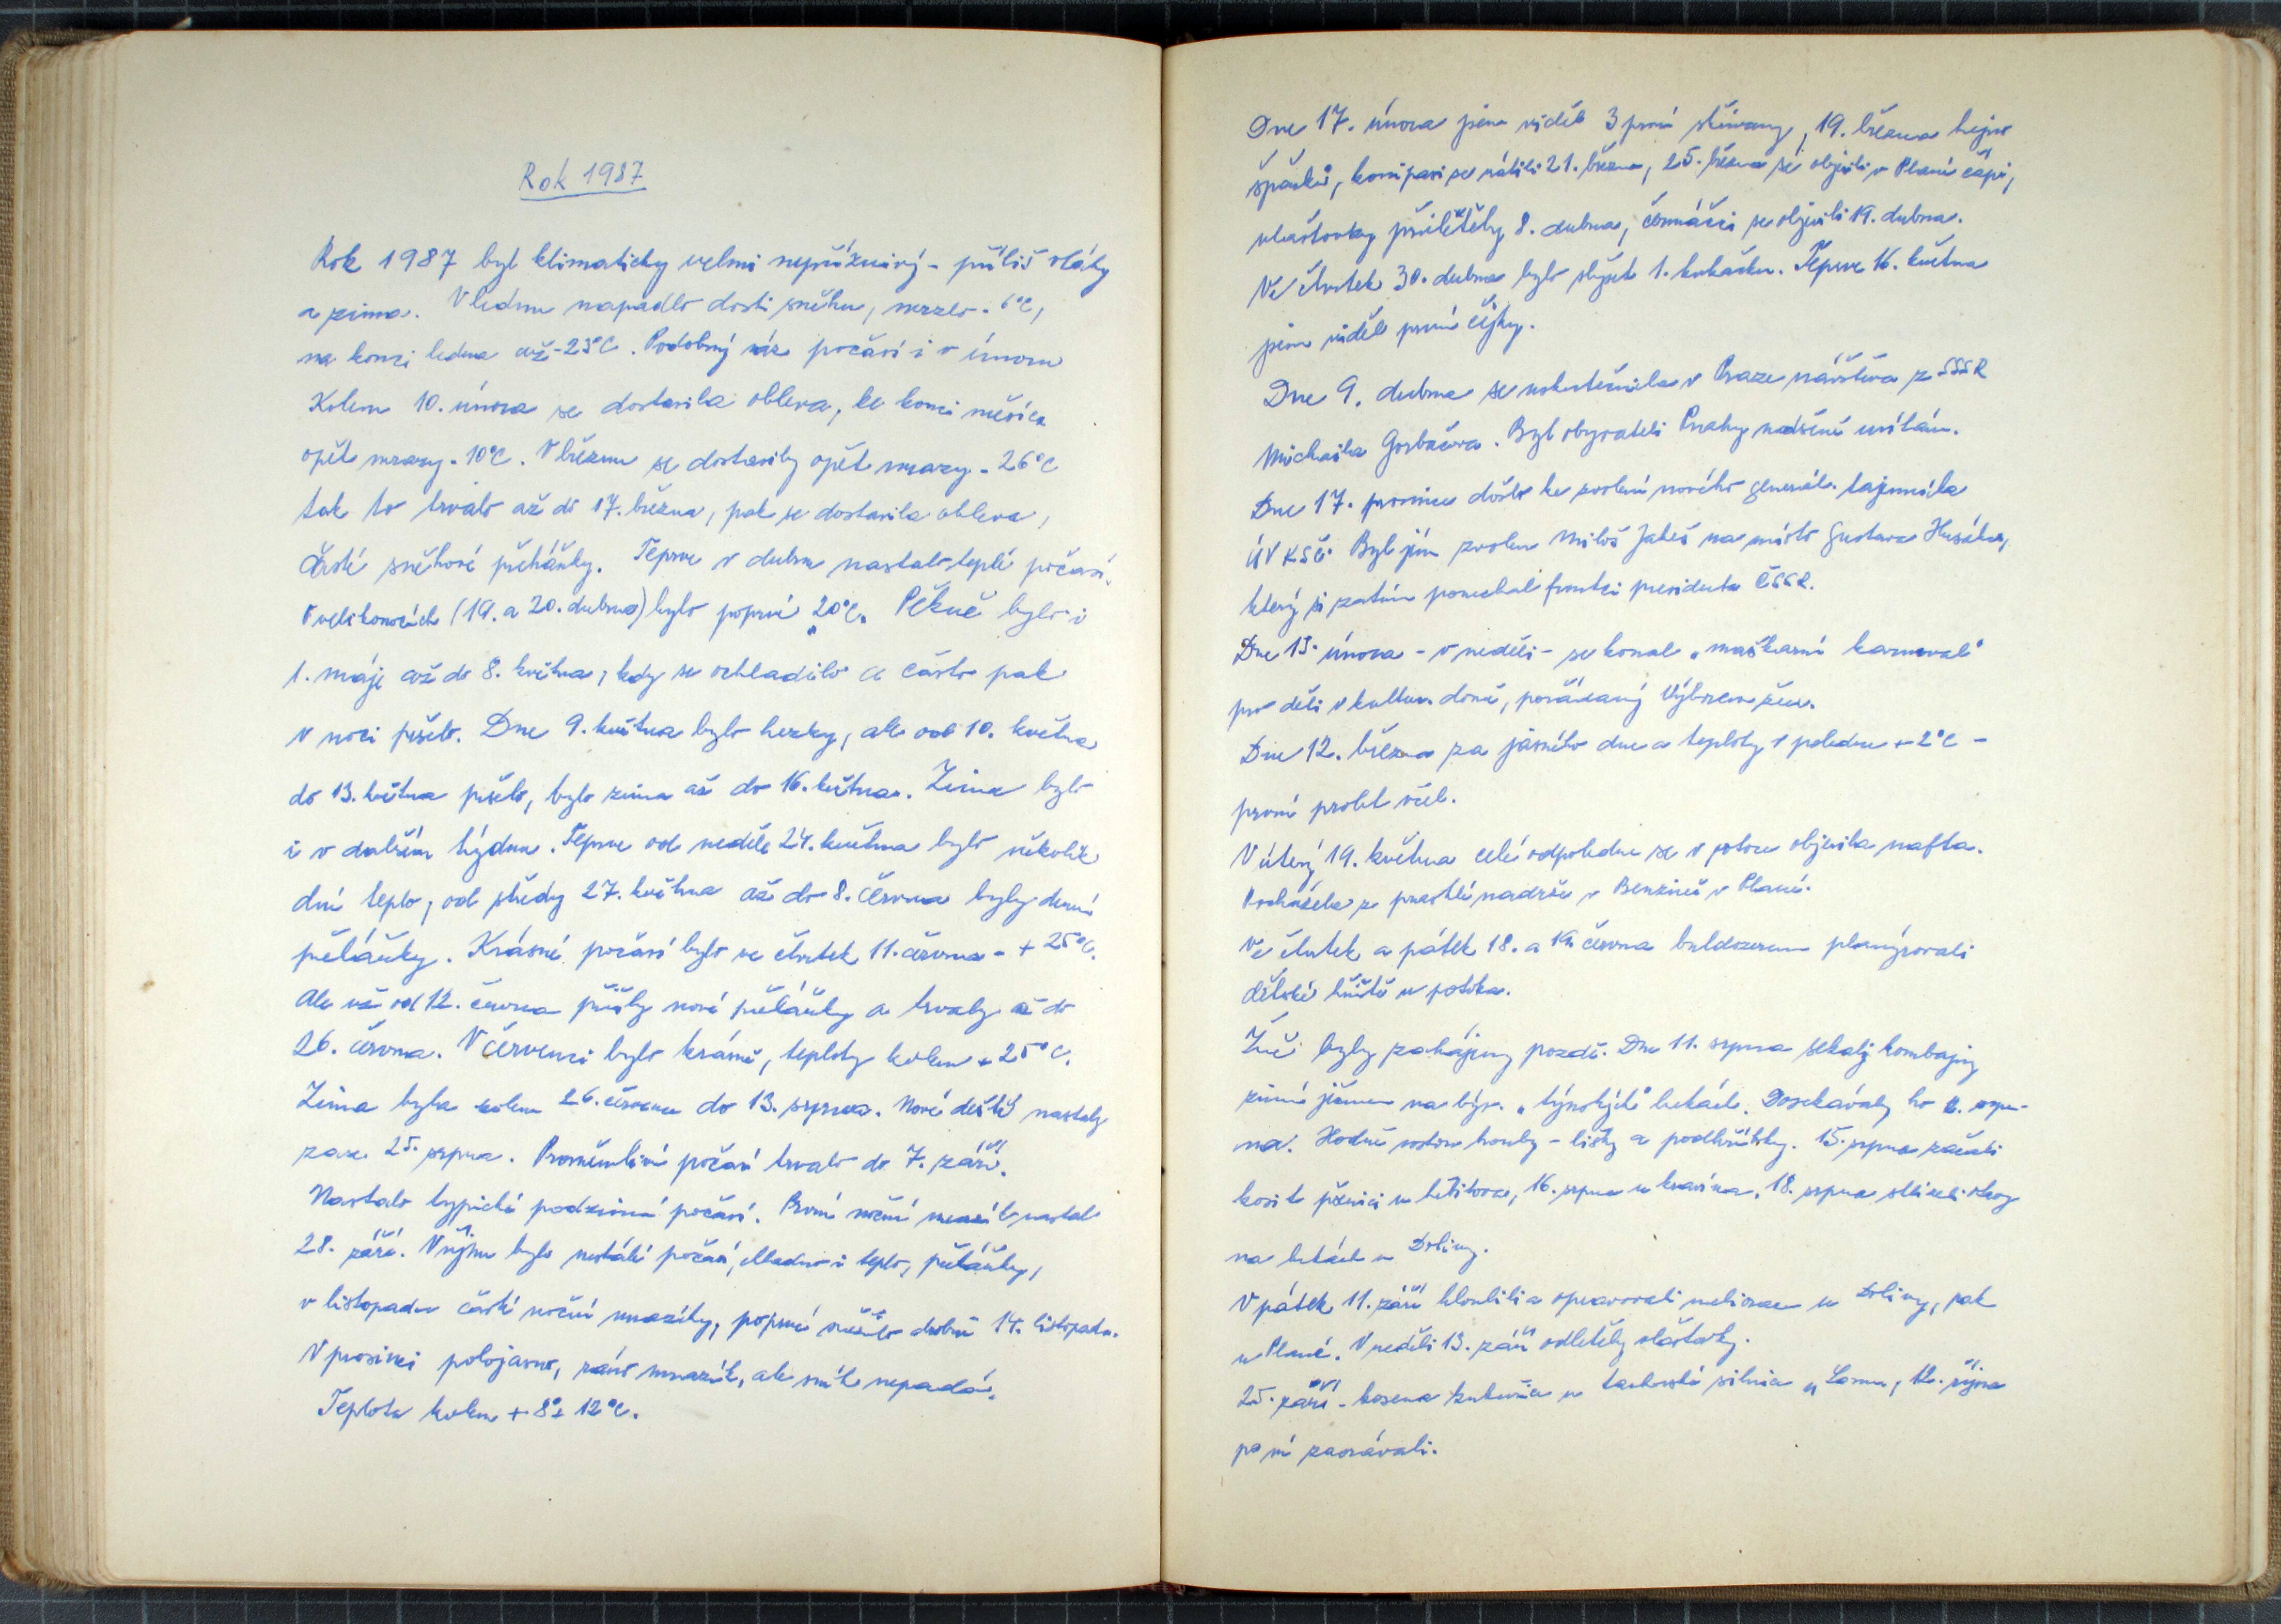 Rok 1987
Rok 1987 byl klimaticky velmi nepříznivý - příliš vláhy
a zima. V lednu napadlo dosti sněhu, mrzlo - 6°C,
na konci ledna až -23°C. Podobný ráz počasí i v únoru
Kolem 10. února se dostavila obleva, ke konci měsíce
opět mrazy - 10°C. V březnu se dostavily opět mrazy - 26°C
tak to trvalo až do 17. března, pak se dostavila obleva,
časté sněhové přeháňky. Teprve v dubnu nastalo teplé počasí.
O velikonocích (19. a 20. dubna) bylo poprvé 20°C. Pěkně bylo i
1. máje až do 8. května, kdy se ochladilo a často pak
v noci pršelo. Dne 9. května bylo hezky, ale od 10. května
do 13. května pršelo, bylo zima až do 16. května. Zima bylo
i v dalším týdnu. Teprve od neděle 24. května bylo několik
dní teplo, od středy 27. května až do 8. června byly denně
přeháňky. Krásné počasí bylo ve čtvrtek 11. června - + 25°C.
Ale už od 12. června přišly nové přeháňky a trvaly až do
26. června. V červenci bylo krásně, teploty kolem + 25°C.
Zima byla kolem 26. července do 13. srpna. Nové deště nastaly
zase 25. srpna. Proměnlivé počasí trvalo do 7. září.
Nastalo typické podzimní počasí. První noční mrazík nastal
28. září. V říjnu bylo nestálé počasí, chladno i teplo, přeháňky,
v listopadu časté noční mrazíky, poprvé sněžilo drobně 14. listopadu.
V prosinci polojasno, ráno mrazík, ale sníh nepadá.
Teplota kolem + 8°+ 12°C.
Dne 17. února jsem viděl 3 první skřivany, 19. března hejno
špačků, konipasi se vrátili 21. března, 25. března se objevili v Plané čápi,
vlaštovky přiletěly 8. dubna, čermáčci se objevili 19. dubna.
Ve čtvrtek 30. dubna bylo slyšet 1. kukačku. Teprve 16. května
jsem viděl první čejky.
Dne 9. dubna se uskutečnila v Praze návštěva z SSSR
Michaila Gorbačova. Byl obyvateli Prahy nadšeně uvítán.
Dne 17. prosince došlo ke zvolení nového generál. tajemníka
ÚV KSČ. Byl jím zvolen Miloš Jakeš na místo Gustava Husáka,
který si zatím ponechal funkci presidenta ČSSR.
Dne 15. února - v neděli - se konal „maškarní karneval"
pro děti v kultur. domě, pořádaný Výborem žen.
Dne 12. března za jasného dne a teploty v poledne + 2°C -
první prolet včel.
V úterý 19. května celé odpoledne se v potoce objevila nafta.
Pocházela z prasklé nádrže v Benzině v Plané.
Ve čtvrtek a pátek 18. a 19. června buldozerem planýrovali
dětské hřiště u potoka.
Žně byly zahájeny pozdě. Dne 11. srpna sekaly kombajny
zimní ječmen na býv. „týnských" lukách. Dosekávaly ho srp-
na. Hodně rostou houby - lišky a podhříbky. 15. srpna začali
kosit pšenici u letiště, 16. srpna u kravína, 18. srpna sklízeli
na lukách u Doliny.
V pátek 11. září hloubili a opravovali meliorace u Doliny, pak
u Plané. V neděli 13. září odletěly vlaštovky.
25. září - kosena kukuřice u tachovské silnice u Lomu, října
po ní zaorávali.